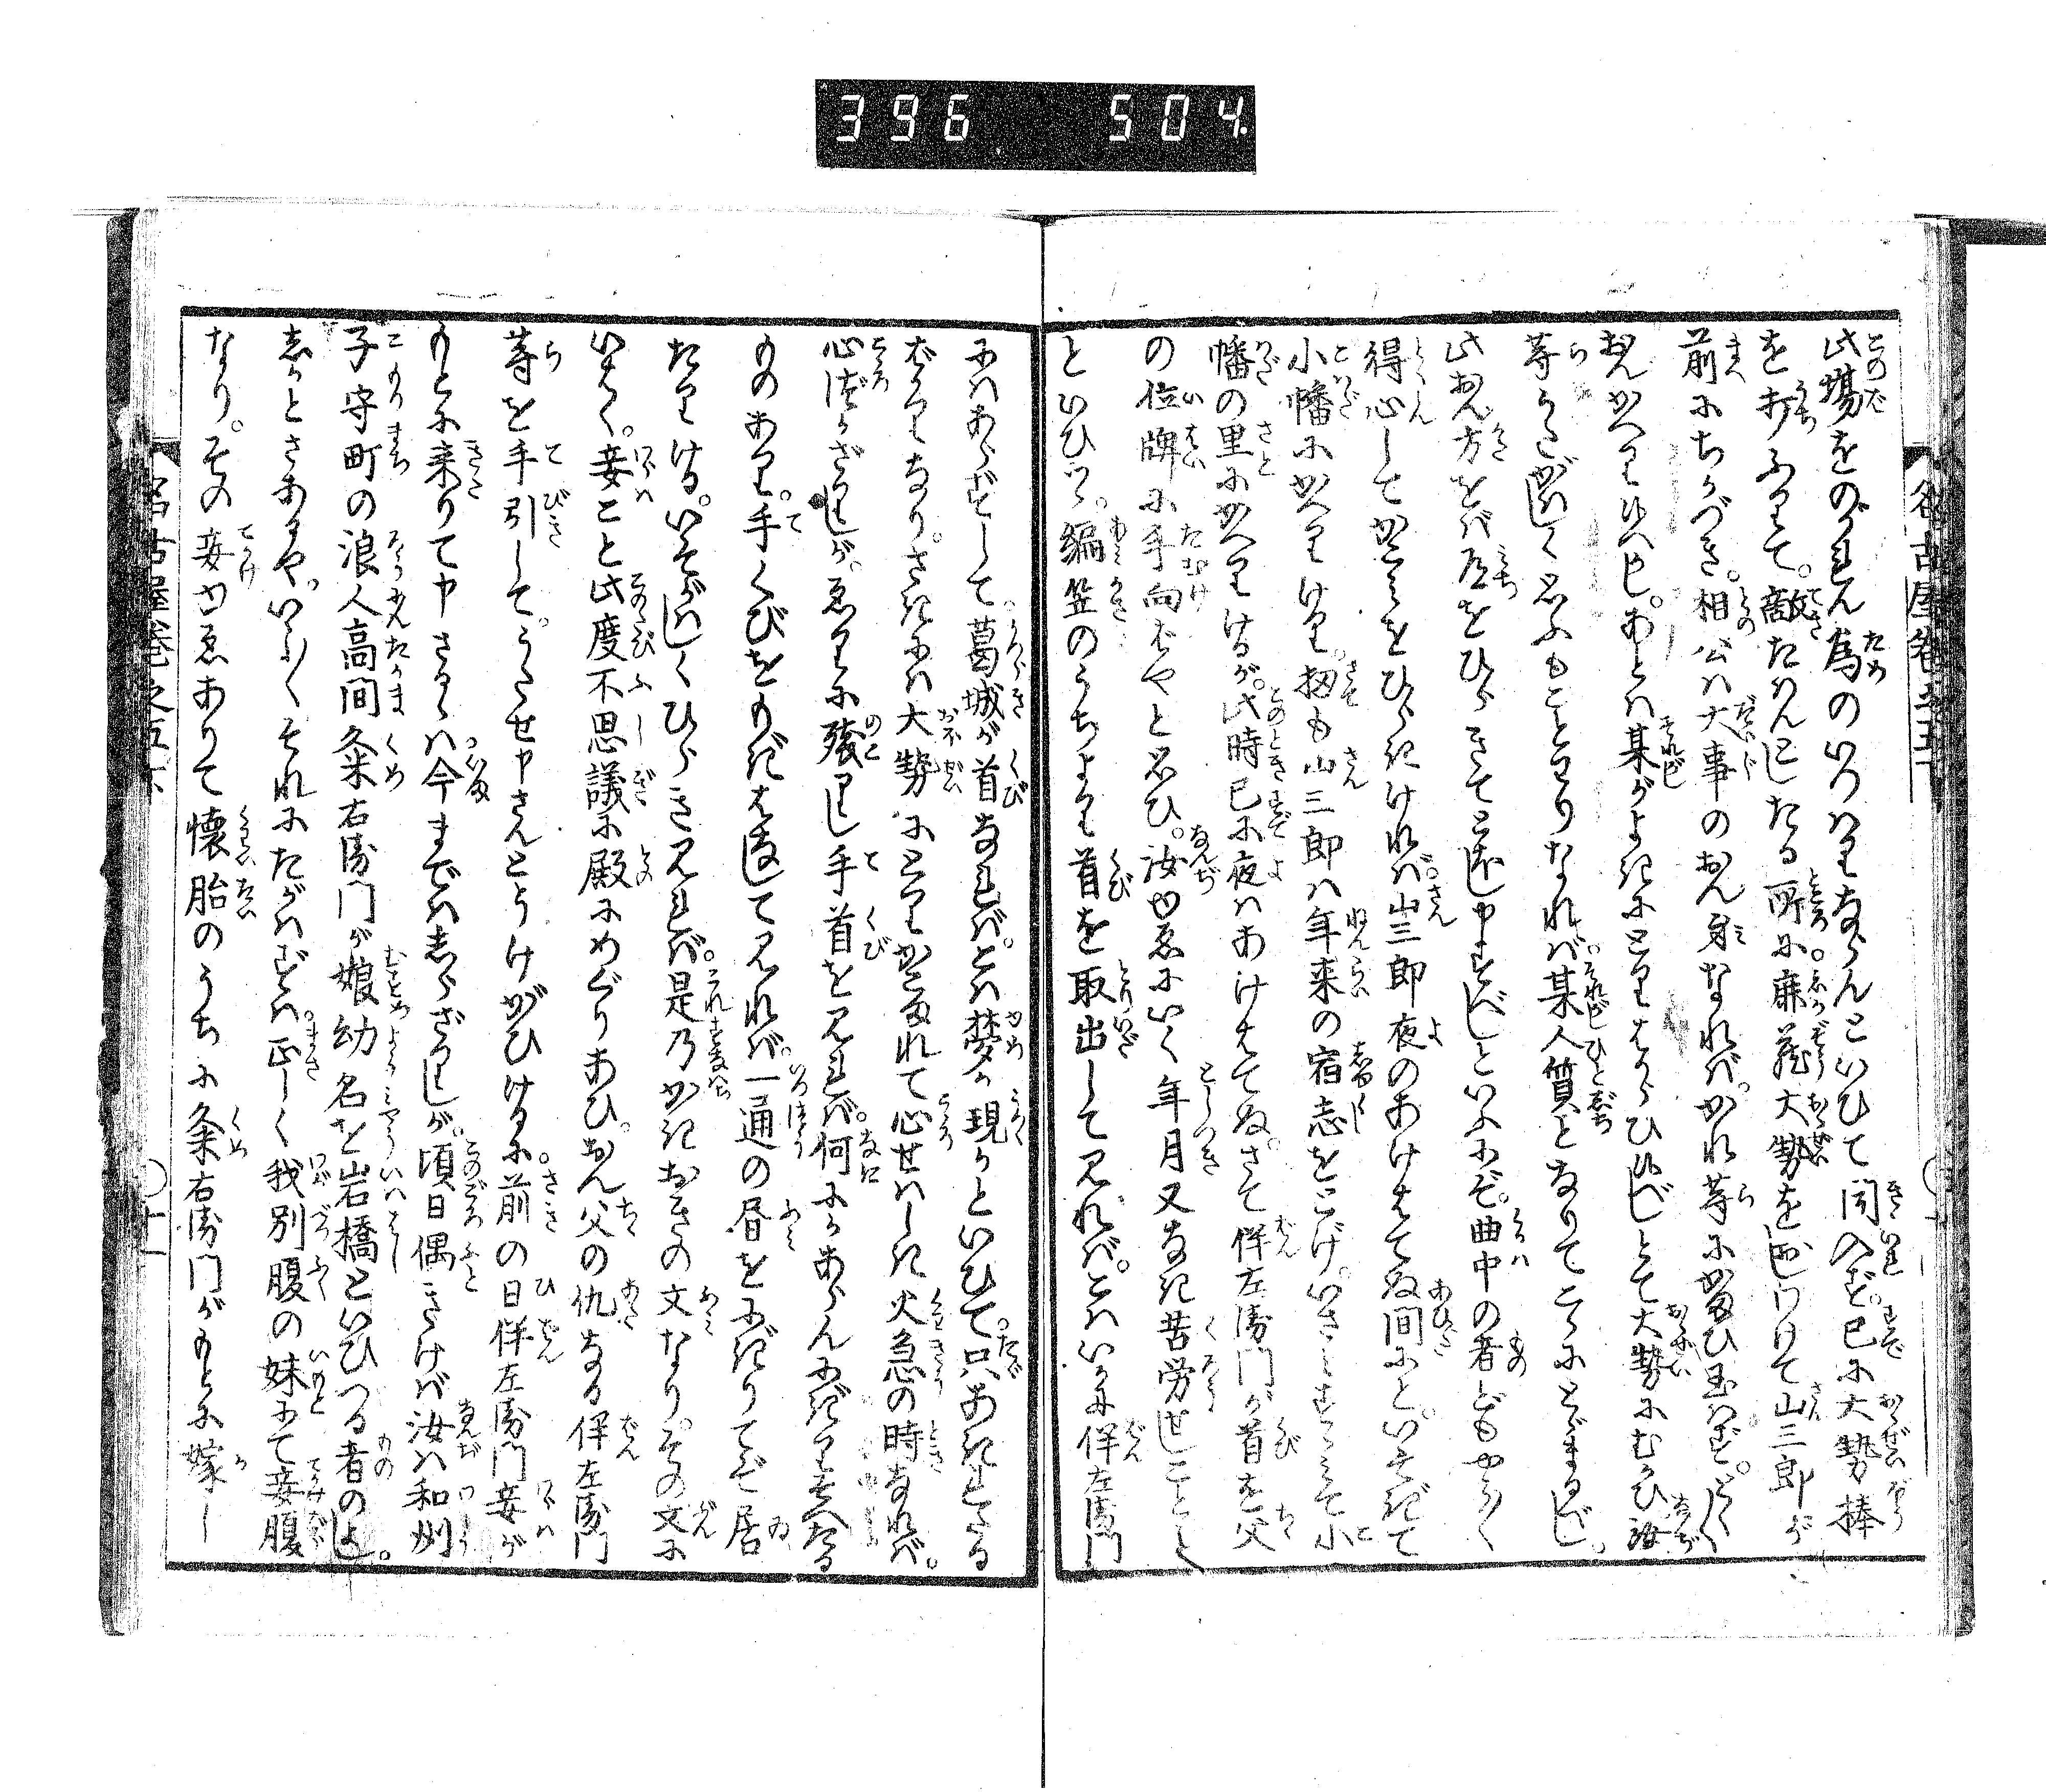 396 504
此場をのがれん為のいつはりならんといひて聞入ず。已に大勢棒
を打ふりて。敵たはんとしたる所に廉蔵大勢を正しわけて山三郎が
前にちかづき。相公は大事のおん身なれば。かれ等にかまひ玉はず。とく〳〵
おんかへり候へかし。あとは某がよきにとりはからひ候べしとて大勢にむかひ汝
等うたがはしく思ふもことわりなれば。某人質となりてこゝにとゞまるべし。
此おん方をば道をひらきてとほし申すべしといふにぞ。曲中の者どもやう〳〵
得心してかこみをひらきければ。山三郎夜のあけはてぬ間にと。いそぎて
小幡にかへりけり。扨も山三郎は年来の宿志をとげ。いさみすゝみて小
幡の里にかへりけるが。此時已に夜はあけはてぬ。さて伴左衛門が首を父
の位牌に手向ばやと思ひ。汝ゆゑにいく年月又なき苦労せしことよ
といひつゝ。編笠のうちより首を取出して見れば。こはいかに伴左衛門
にはあらずして。葛城が首なれば。こは夢か現かといひて。只あきれたる
ばかりなり。さきには大勢にとりかこまれて心せはしき火急の時なれば。
心づかざりしが。ゑりに残りし手首を見れば。何にかあらんにぎりそへたる
ものあり。手くびをもぎはなして見れば。一通の書をにぎりてぞ居
たりける。いそがはしくひらき見れば。是乃かきおきの文なり。その文に
いはく。妾こと此度不思議に殿にめぐりあひ。おん父の仇なる伴左衛門
等を手引して。うたせ申さんとうけがひけるに。前の日伴左衛門妾が
もとに来りて申さるゝは今まではしらざりしが。頃日偶きけば汝は和州
子守町の浪人高間粂右衛門が娘幼名を岩橋といひつる者のよし。
しかとさありや。いふ〳〵それにたがはずは。正しく我別腹の妹にて妾腹
なり。その妾ゆゑありて懐胎のうちに粂右衛門がもとに嫁し